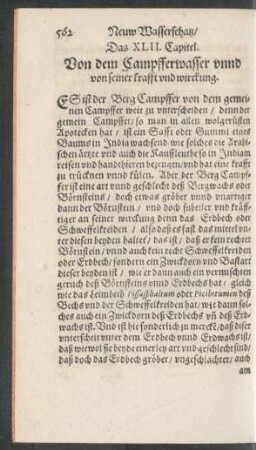 562 Neuw Wasserschatz/
Das XLII. Capitel.
Von dem Campfferwasser vnnd
von seiner krafft vnd wirckung.
ES ist der Berg Campffer von dem gemei-
nen Campffer weit zu vnterscheiden / denn der
gemein Campffer / so man in allen wolgerüsten
Apotecken hat / ist ein Safft oder Gummi eines
Baums in India wachsend wie solches die Arabi-
schen ärtzte vnd auch die Kauffleuthe so in Indiam
reisen vnd handthieren bezeugen / vnd hat eine krafft
zu trücknen vnnd külen. Aber der Berg Camp-
fer ist eine art vnnd geschlecht deß Bergwachs oder
Börnsteins / doch etwas gröber vnnd vnartiger
dann der Börnstein / vnd doch subtiler vnd kräff-
tiger an seiner wirckung denn das Erdbech oder
Schweffelkreiden / also daß es fast das mittel vn-
ter diesen beyden haltet / das ist / daß er kein rechter
Börnstein / vnnd auch kein recht Schweffelkreiden
oder Erdbech / sondern ein Zwickdorn vnd Bastart
dieser beyden ist / wie er dann auch ein vermischten
geruch deß Börnsteins vnnd Erdbechs hat / gleich
wie das Leimbech Pissasphaltum oder Picibitumen deß
Bechs vnd der Schweffelkreiden hat / wie dann sol-
ches auch ein Zwickdorn deß Erdbechs vñ deß Erd-
wachs ist. Vnd ist hie sonderlich zu mercken / daß dieser
vnterscheit vnter dem Erdbech vnnd Erdwachs ist /
daß wiewol sie beyde einerley art vnd geschlecht sind /
daß doch das Erdbech gröber / vngeschlachter / auch
am